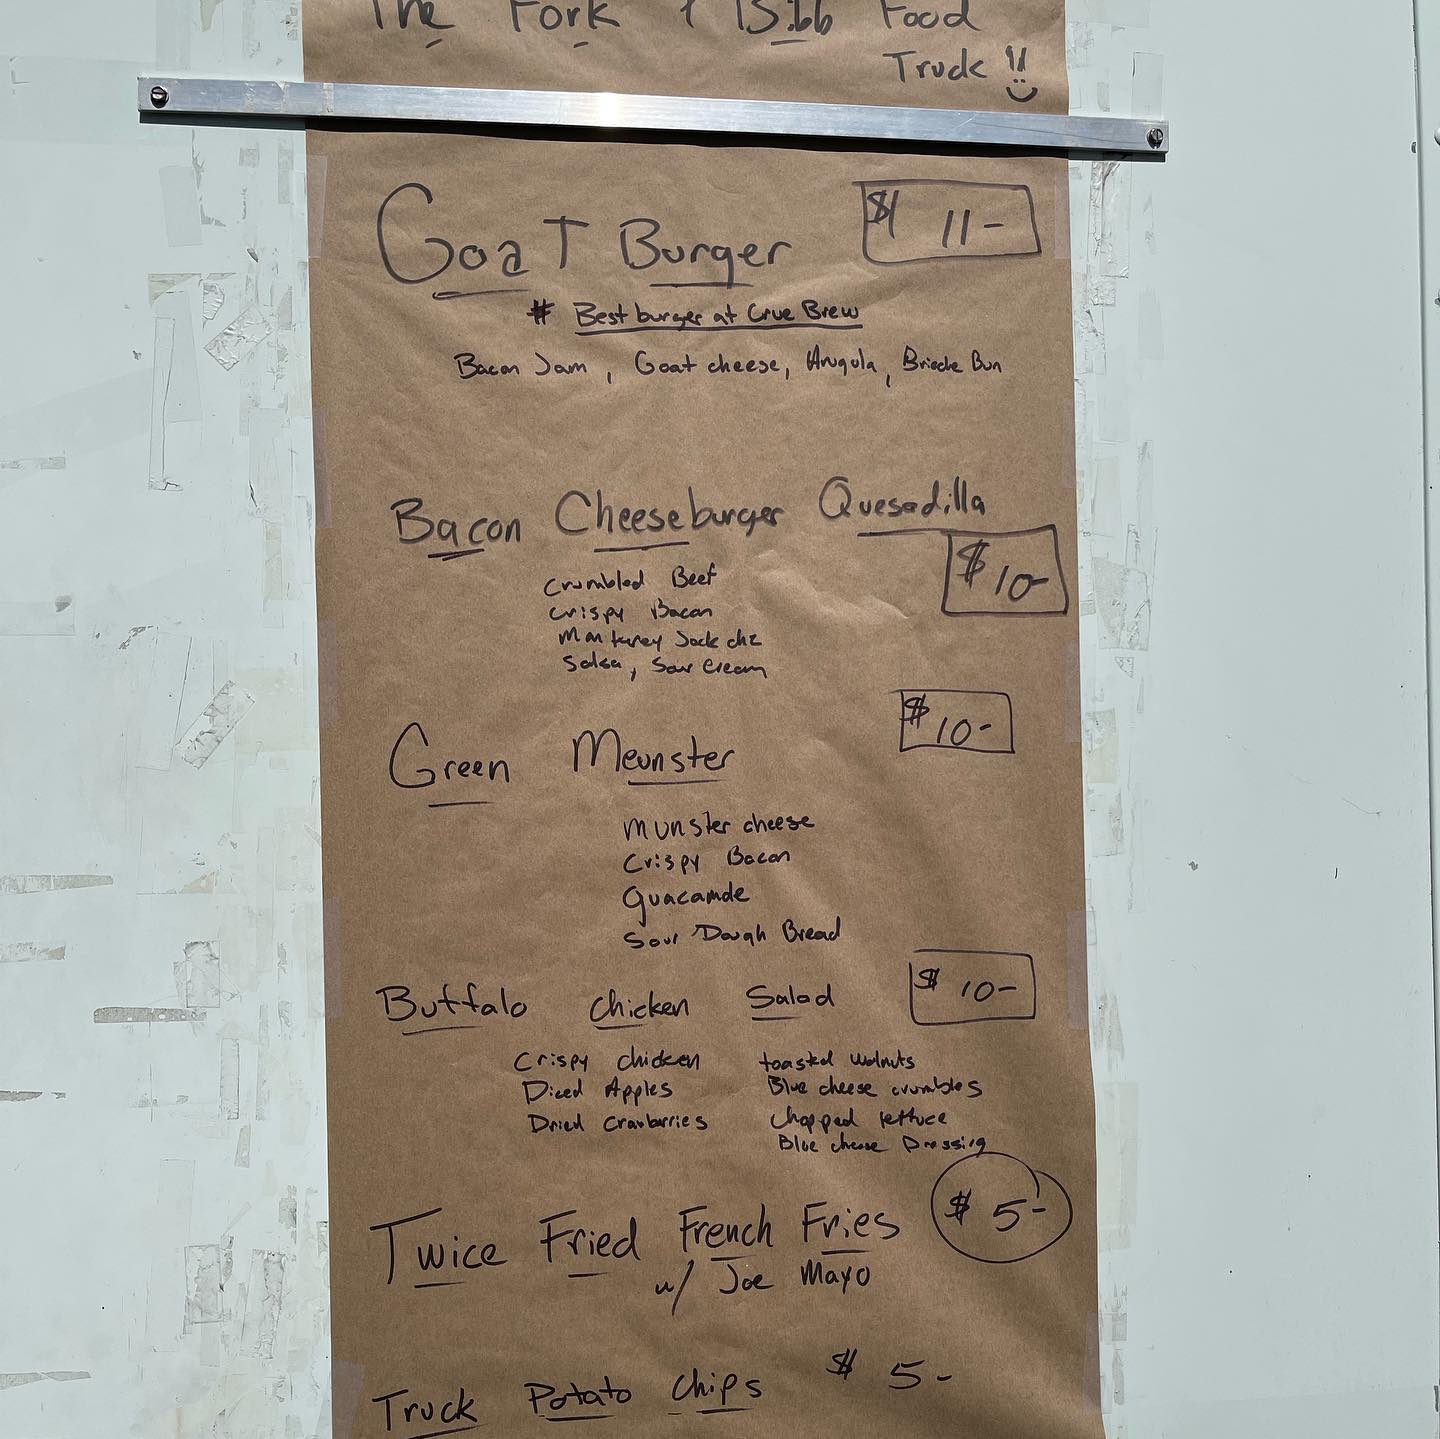 The Fork & Bibb Food
Truck !!
Goat Burger $ 11-
# Best burger at Crue Brew
Bacon Jam, Goat cheese, Arugula, Brioche Bun
Bacon Cheeseburger Quesadilla
$ 10-
Crumbled Beef
Crispy Bacon
Monterey Jack chz
Salsa, Sour Cream
Green Meunster $ 10-
Munster cheese
Crispy Bacon
Guacamole
Sour Dough Bread
Buffalo Chicken Salad $ 10-
Crispy chicken toasted walnuts
Diced Apples Blue cheese crumbles
Dried cranberries Chopped lettuce
Blue cheese Dressing
Twice Fried French Fries $ 5-
w/ Joe Mayo
Truck Potato Chips $ 5-